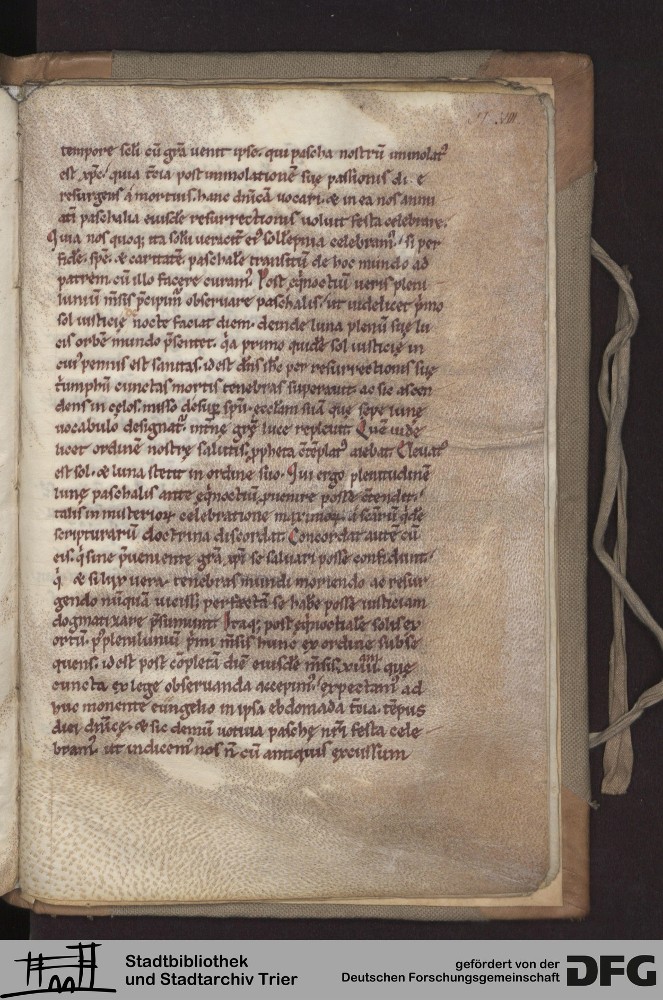 tempore seli cū grā uenit ipse. qui pascha nostrū immolatꝰ
est xp̄c. quia t̄cia post immolationē suę passionis di e
resurgens a mortuis. hanc dn̄icā uocari. & in ea nos anni
ati paschalia eiusdē resurrectionis uoluit festa celebrare.
Quia nos quoq; ita soli ueracit̄ eiꝰ sollēpnia celebramꝰ. si per
fidē. spē. & caritatē. paschalē transitū de hoc mundo ad
patrem. cū illo facere curamꝰ. Post eq̄noctiū ueris pleni
luniū m̄sis p̄cipimꝰ obseruare paschalis. ut uidelicet p̄mo
sol iusticię nocte faciat diem. deinde luna plenū suę lu
cis orbē mundo p̄sentet. q̄a primo quidē sol iusticię in
cuiꝰ pennis est sanitas. id est dn̄s ih̄c per resurrectionis suę
t̄umphū cunctas mortis tenebras superauit. ac sic ascen
dens in celos. misso desup̱ sp̄u. eccl̄am suā que sepe lunę
uocabulo designatꝰ. int̄nę gr̄ę luce repleuit. Quē uide
licet ordinē nostrę salutis. ꝓpheta c̄tēplatꝰ aiebat. Eleuatꝰ
est sol. & luna stetit in ordine suo. Qui ergo plenitudinē
lunę paschalis ante eq̄noctiū puenire posse c̄tendit.
talis in misterioꝝ celebratione maximoꝝ. a sc̄arū qꝰdē
scripturarū doctrina discordat. Concordat autē cū
eis. q̄ sine p̄ueniente grā xp̄i se saluari posse confidunt.
q̄ & si lux uera tenebras mundi moriendo ac resur
gendo nūquā uicisset. perfectā se habē posse iusticiam
dogmatizare p̄sumunt. Itaq; post eq̄noctialē solis ex
ortū. p̱ pleniluniū p̄mi m̄sis hunc ex ordine subse
quens. id est post cōpletā diē eiusdē m̄sis. xiiii. que
cuncta ex lege obseruanda accepimꝰ. expectamꝰ ad
huc monente eūngelio in ipsa ebdomada t̄cia. tēpus
diei dn̄icę. & sic demū uotiua paschę nr̄i festa cele
bramꝰ. ut indicemꝰ nos n̄ cū antiquis excussum
Stadtbibliothek
und Stadtarchiv Trier
gefördert von der
Deutschen Forschungsgemeinschaft
DFG